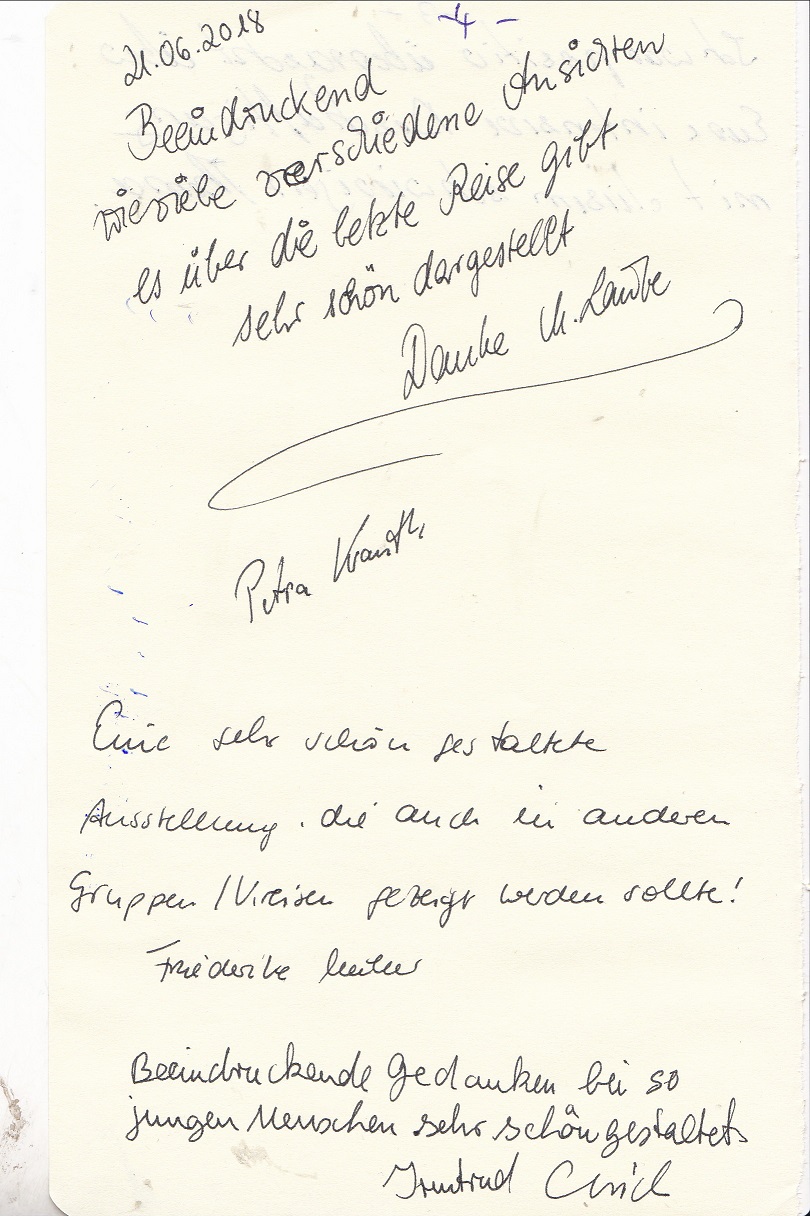 - 4 -
21.06.2018
Beeindruckend
wieviele verschiedene Ansichten
es über die letzte Reise gibt
sehr schön dargestellt
Danke M. Laube
Petra
Eine sehr schön gestaltete
Ausstellung. die auch in anderen
Gruppen / Kreisen gezeigt werden sollte!
Friederike
Beeindruckende Gedanken bei so
jungen Menschen sehr schön gestaltet
Irmtrud